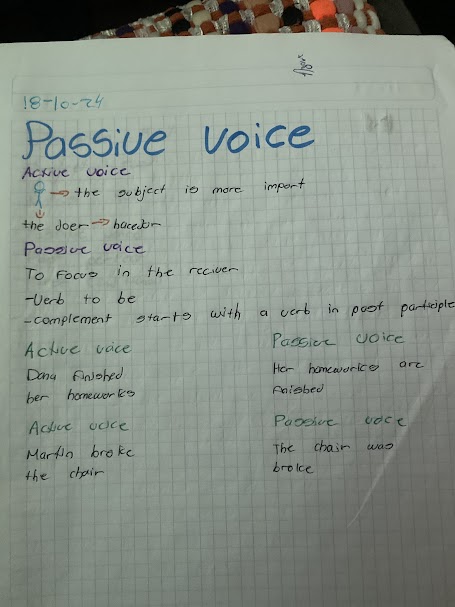 18-10-24
Passive voice
Active voice
→ the subject is more import
the doer → hacedor
Passive voice
To Focus in the reciver
-Verb to be
-complement starts with a verb in past participle
Active voice
Dana finished
her homeworks
Passive voice
Her homeworks are
finished
Active voice
Martin broke
the chair
Passive voice
The chair was
broke